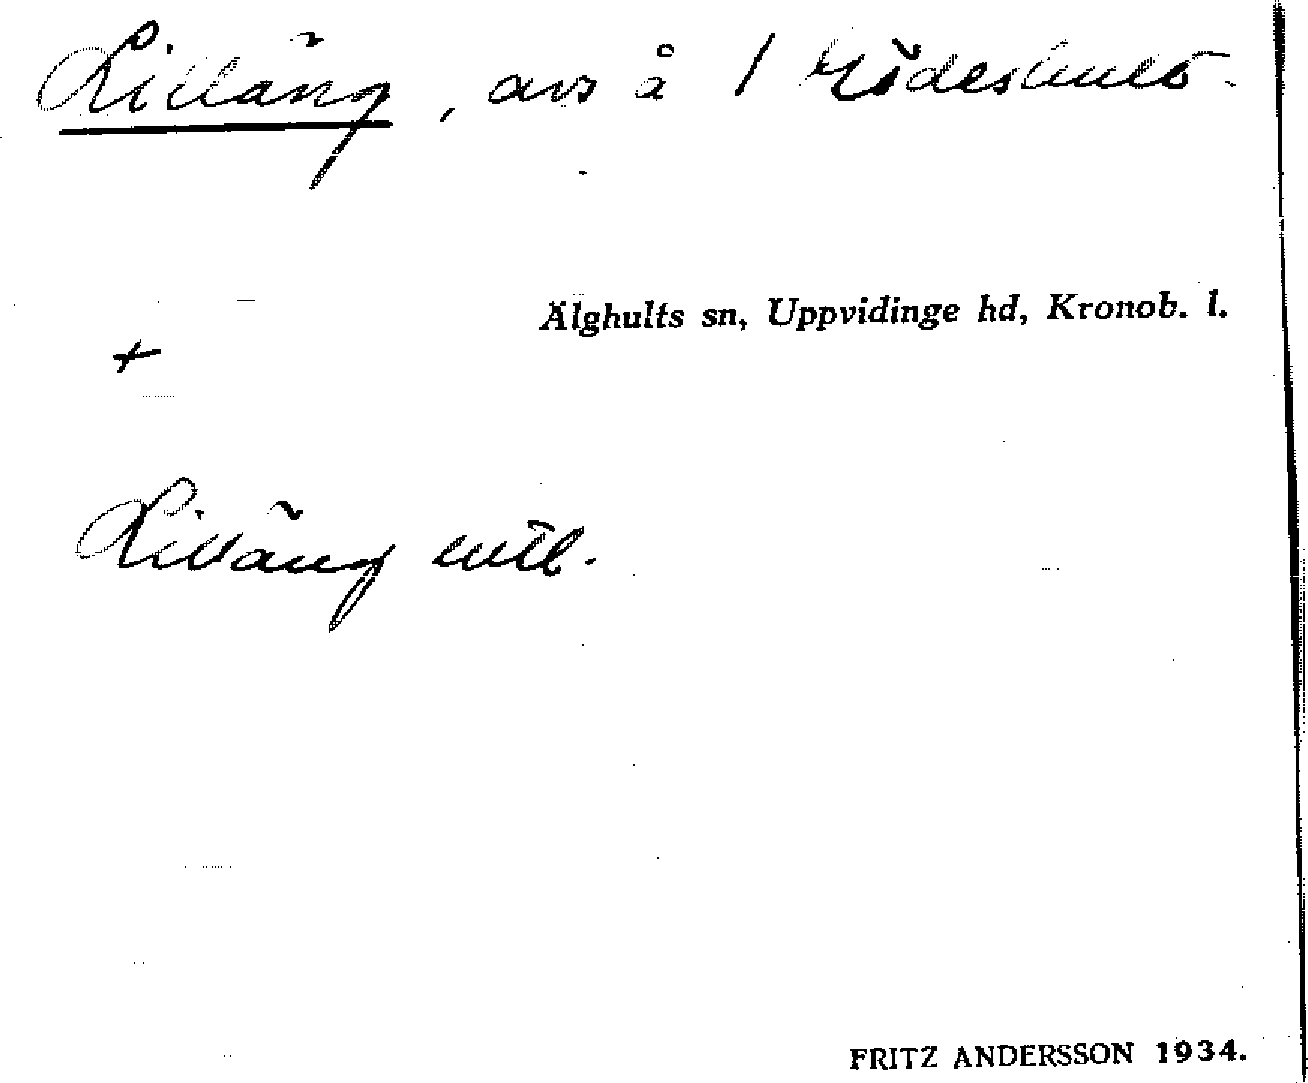 Lilläng, avs å 1 Brödeshult.
Älghults sn, Uppvidinge hd, Kronob. l.
+
Lilläng uttl.
FRITZ ANDERSSON 1934.